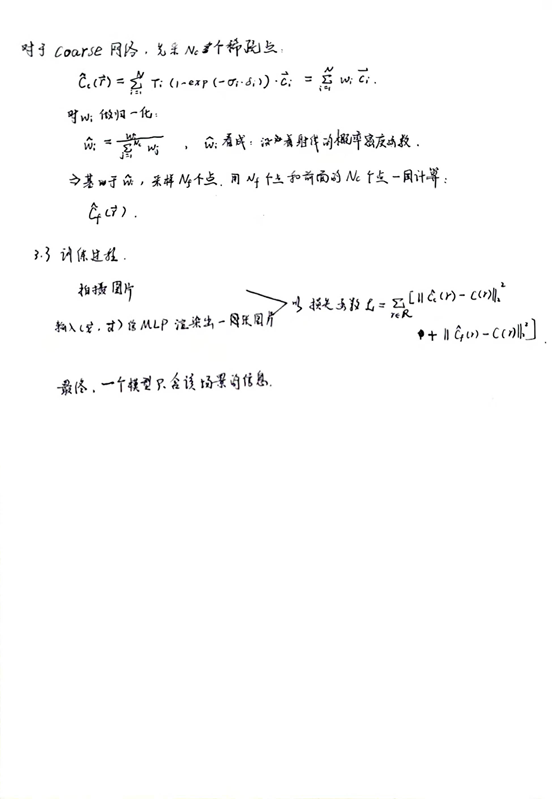 对于 coarse 网络,先采 Nc 个稀疏点:
Ĉc(r⃗) = Σ_{i=1}^{N} Ti (1-exp(-σi·δi))·c⃗i = Σ_{i=1}^{N} wi c⃗i.
对 wi 做归一化:
ŵi = wi / Σ_{j=1}^{Nc} wj , ŵi 看成:沿着射线的概率密度函数.
⇒ 基于 ŵi, 采样 Nf 个点. 用 Nf 个点和前面的 Nc 个点一同计算:
Ĉf(r⃗).
3.3 训练过程.
拍摄图片
输入(x⃗, d⃗) 给 MLP 渲染出一张图片
损失函数 L = Σ_{r∈R} [ ||Ĉc(r) - C(r)||₂²
+ ||Ĉf(r) - C(r)||₂² ]
最终, 一个模型只含该场景的信息.